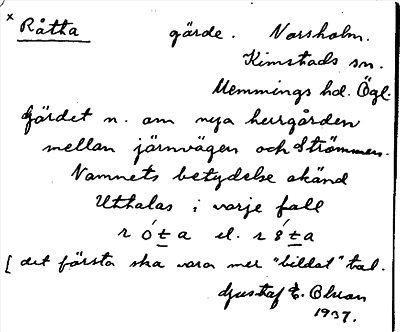 x Råtta gärde. Norsholm.
Kimstads sn.
Memmings hd. Ögl.
Gärdet n. om nya herrgården
mellan järnvägen och Strömmen.
Namnets betydelse okänd
Uttalas i varje fall
r ó t a el. r t a
[ det första ska vara mer "bildat" tal.
Gustaf E. Olson
1937.